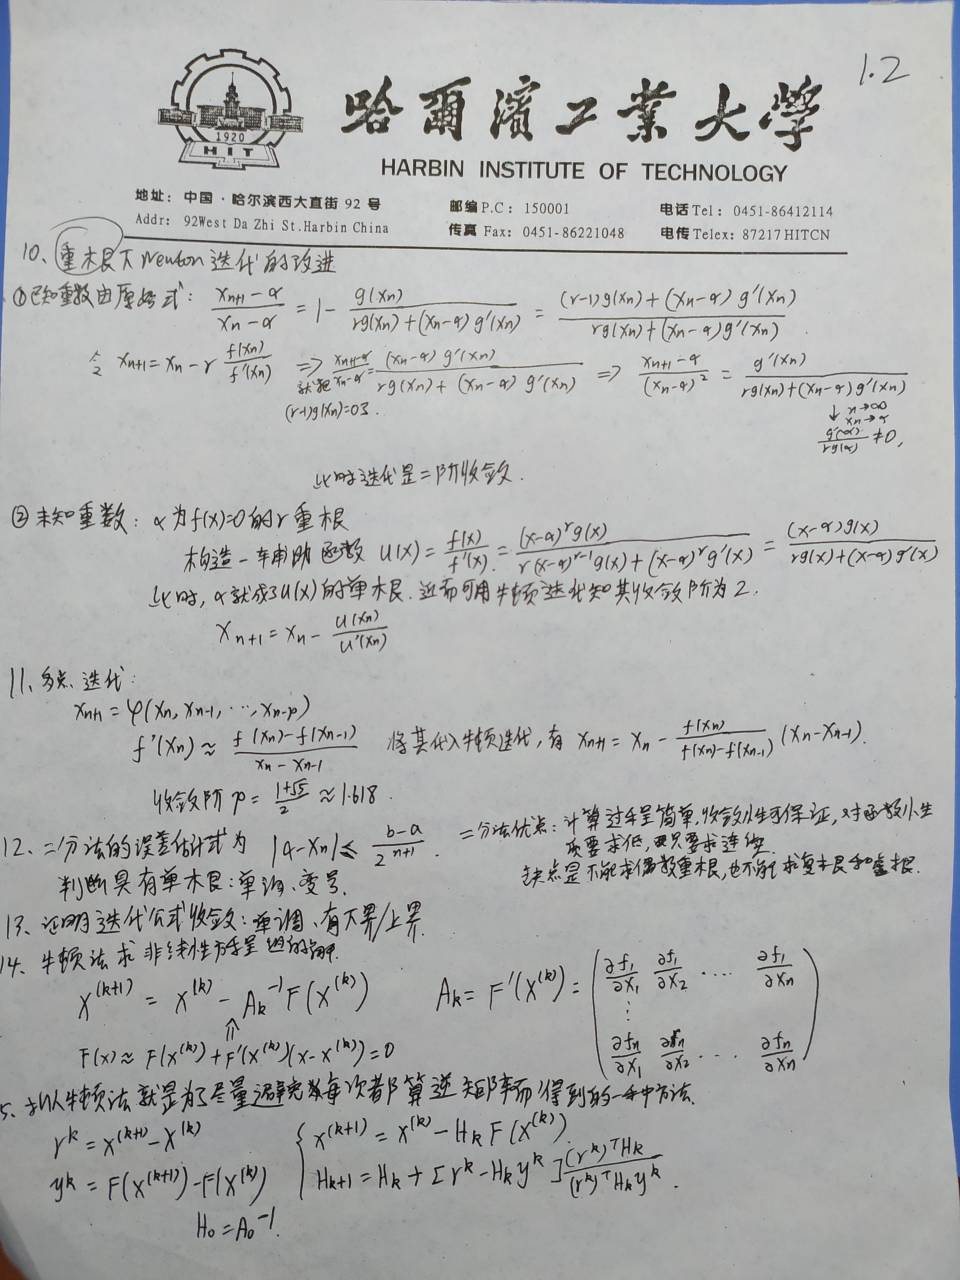 1.2
1920
HIT
哈爾濱工業大學
HARBIN INSTITUTE OF TECHNOLOGY
地址: 中国·哈尔滨西大直街 92 号 邮编 P.C: 150001 电话 Tel: 0451-86412114
Addr: 92West Da Zhi St.Harbin China 传真 Fax: 0451-86221048 电传 Telex: 87217 HITCN
10、重根下Newton迭代的改进
①已知重数由原始式: (x_{n+1}-α)/(x_n-α) = 1- g(x_n)/(rg(x_n)+(x_n-α)g'(x_n)) = ((r-1)g(x_n)+(x_n-α)g'(x_n))/(rg(x_n)+(x_n-α)g'(x_n))
令 x_{n+1}=x_n-r f(x_n)/f'(x_n) ⇒ (x_{n+1}-α)/(x_n-α)=(x_n-α)g'(x_n)/(rg(x_n)+(x_n-α)g'(x_n)) ⇒ (x_{n+1}-α)/(x_n-α)² = g'(x_n)/(rg(x_n)+(x_n-α)g'(x_n))
就把(r-1)g(x_n)=0了. ↓ n→∞ x_n→α
g'(α)/rg(α) ≠0,
此时迭代是二阶收敛.
②未知重数: α为f(x)=0的r重根
构造一辅助函数 u(x)= f(x)/f'(x) = (x-α)^r g(x)/(r(x-α)^{r-1}g(x)+(x-α)^r g'(x)) = (x-α)g(x)/(rg(x)+(x-α)g'(x))
此时, α就成了u(x)的单根. 近而可用牛顿迭代知其收敛阶为2.
x_{n+1}=x_n- u(x_n)/u'(x_n)
11、多点迭代:
x_{n+1}=φ(x_n, x_{n-1}, ⋯, x_{n-p})
f'(x_n)≈ (f(x_n)-f(x_{n-1}))/(x_n-x_{n-1}) 将其代入牛顿迭代, 有 x_{n+1}=x_n- f(x_n)/(f(x_n)-f(x_{n-1})) (x_n-x_{n-1}).
收敛阶 p= (1+√5)/2 ≈1.618.
12、二分法的误差估计式为 |α-x_n|≤ (b-a)/2^{n+1}. 二分法优点: 计算过程简单, 收敛性可保证, 对函数性
质要求低, 只要求连续.
判断具有单根: 单调、变号. 缺点是不能求偶数重根, 也不能求复根和虚根.
13、证明迭代公式收敛: 单调、有下界/上界.
14、牛顿法求非线性方程组的解.
X^{(k+1)} = X^{(k)} - A_k^{-1} F(X^{(k)}) A_k= F'(X^{(k)}) = (∂f_1/∂x_1 ∂f_1/∂x_2 ⋯ ∂f_1/∂x_n
⋮
∂f_n/∂x_1 ∂f_n/∂x_2 ⋯ ∂f_n/∂x_n)
⇑
F(x)≈ F(X^{(k)})+F'(X^{(k)})(x-X^{(k)})=0
5、拟牛顿法就是为了尽量避免每次都算逆矩阵而得到的一种方法.
r^k = X^{(k+1)}-X^{(k)} { X^{(k+1)} = X^{(k)} - H_k F(X^{(k)})
y^k = F(X^{(k+1)})-F(X^{(k)}) H_{k+1} = H_k + [r^k-H_k y^k] (r^k)^T H_k/((r^k)^T H_k y^k).
H_0=A_0^{-1}.